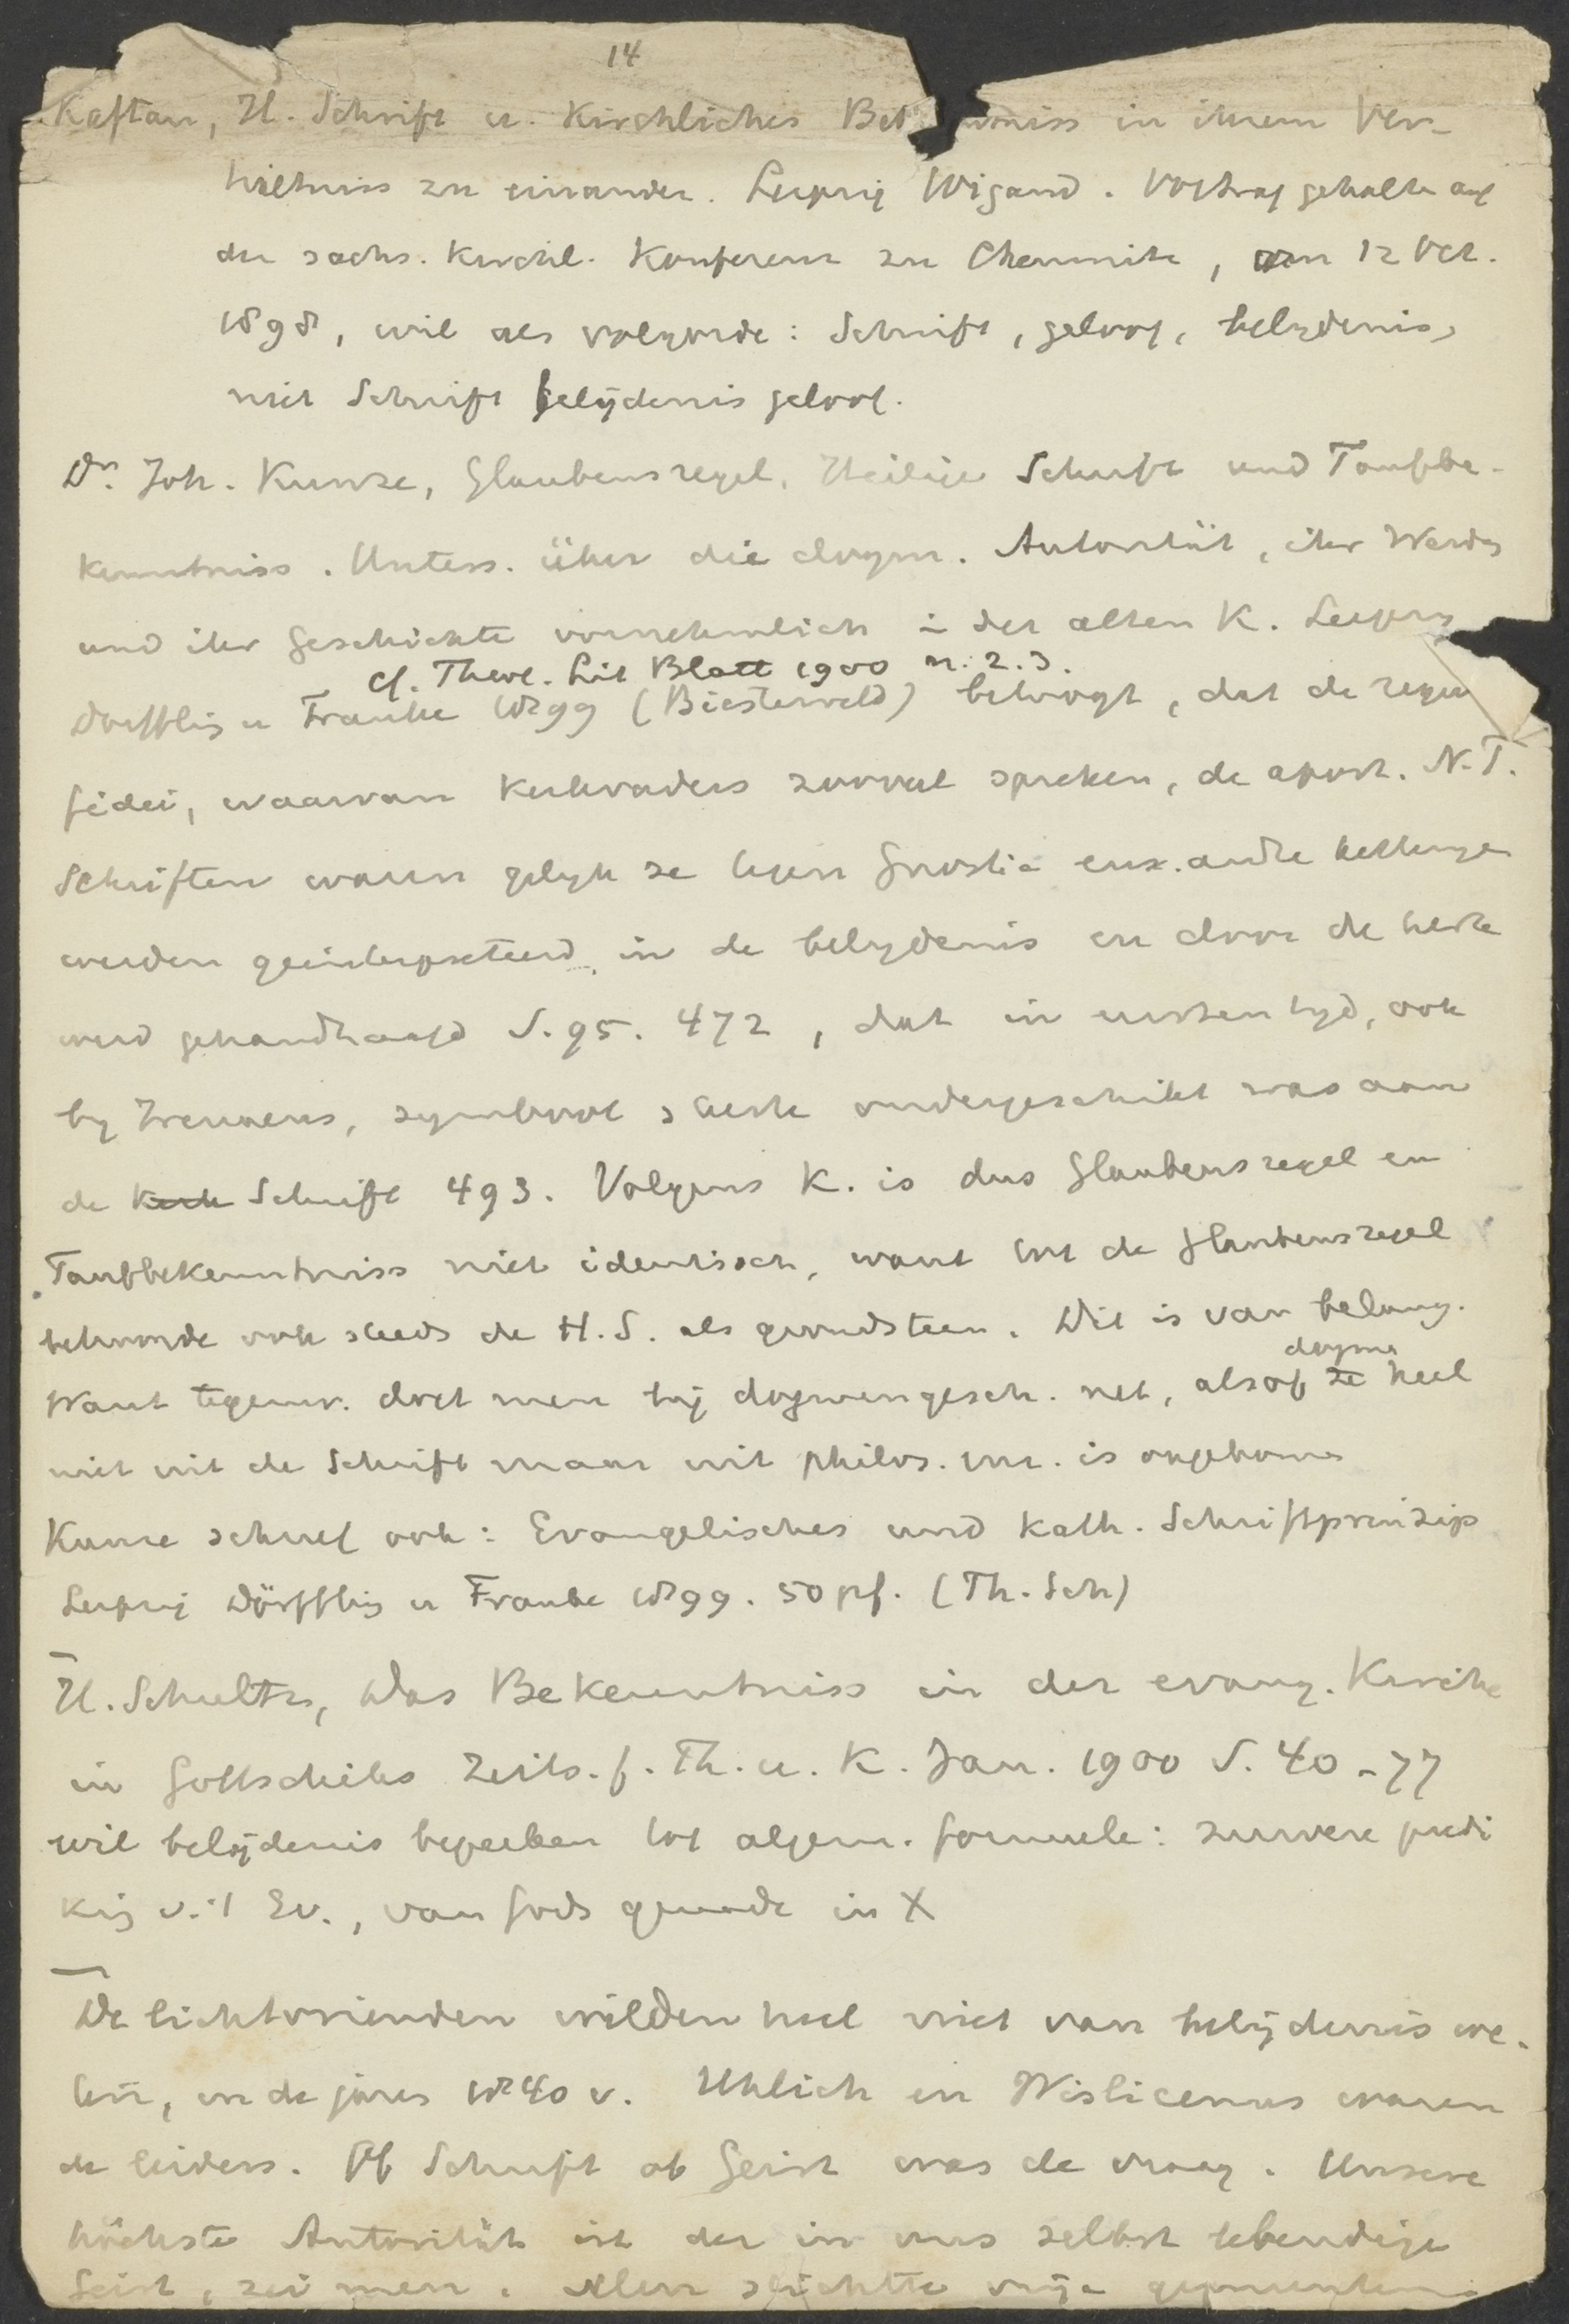 14
Kaftan, H. Schrift u. Kirchliches Bek nntniss in ihrem Ver-
hältniss zu einander. Leipzig Wigand. Vortrag gehalten auf
der sächs. Kirchl. Konferenz zu Chemnitz, am 12 Oct.
1898, wil als volgorde: Schrift, geloof, belydenis,
niet Schrift belijdenis geloof.
Dr. Joh. Kunze, Glaubensregel, Heilige Schrift und Taufbe-
kenntniss. Unters. über die dogm. Autorität, ihr Werden
und ihr Geschichte vornehmlich in der alten K. Leipzig
cf. Theol. Lit Blatt 1900 n. 2. 3.
Dörffling u Franke 1899 (Biesterveld) betoogt, dat de regula
fidei, waarvan Kerkvaders zooveel spreken, de apost. N.T.
Schriften waren gelyk ze tegen Gnostic enz. andre ketteryen
werden geinterpreteerd in de belydenis en door de kerk
werd gehandhaafd S. 95. 472, dat in eersten tyd, ook
by Irenaeus, symbool slechts ondergeschikt was aan
de Kerk Schrift 493. Volgens K. is dus Glaubensregel en
Taufbekenntniss niet identisch, want tot de Glaubensregel
behoorde ook steeds de H.S. als grondsteen. Dit is van belang.
dogma
Want tegenw. doet men bij dogmengesch. net, alsof ze heel
niet uit de Schrift maar uit philos. enz. is opgekomen
Kunze schreef ook: Evangelisches und Kath. Schriftprinzip
Leipzig Dörffling u Franke 1899. 50 pf. (Th. Sch)
H. Schultz, Das Bekenntniss in der evang. Kirche
in Gottschicks Zeits. f. Th. u. K. Jan. 1900 S. 40-77
wil belijdenis beperken tot algem. formule: zuivere predi
king v.'t Ev., van Gods genade in X
De lichtvrienden wilden heel niet van belijdenis we-
ten, in de jaren 1840 v. Uhlich en Wislicenus waren
de leiders. Of Schrift of Geist was de vraag. Unsere
höchste Autorität ist der in uns selbst lebendige
Geist, zei men. Men stichtte vrije gemeenten